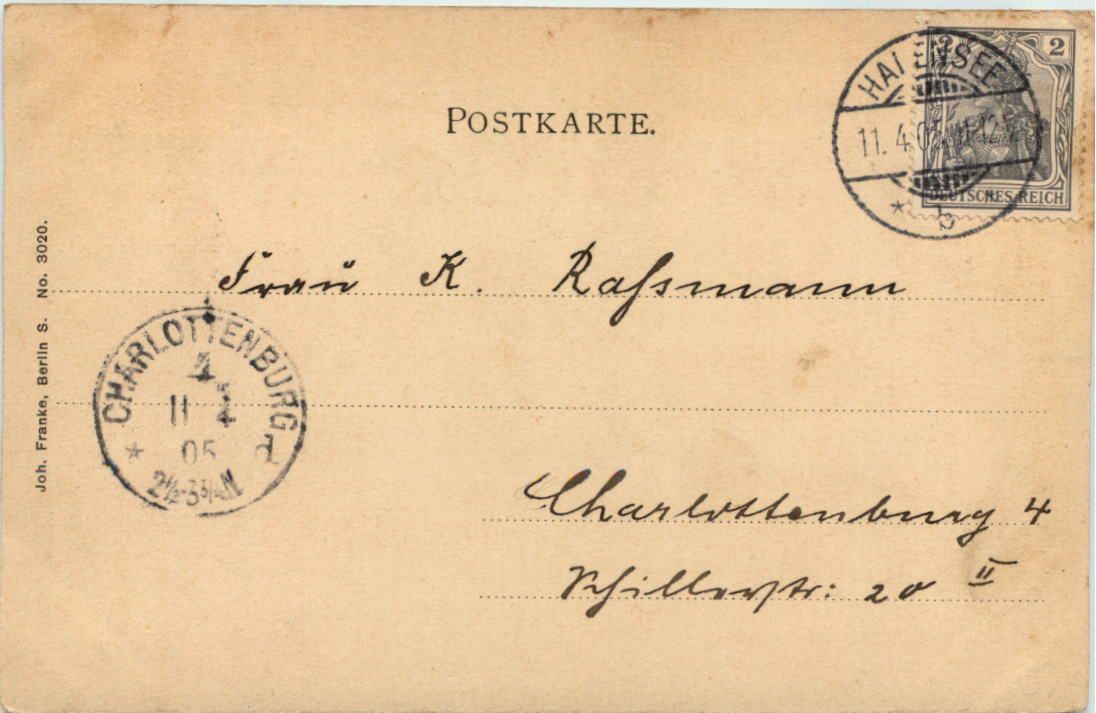 POSTKARTE.
2 2
DEUTSCHES REICH
HALENSEE
11. 4. 05. 11-12
* b
Joh. Franke, Berlin S. No. 3020.
Frau K. Raſsmann
CHARLOTTENBURG
4
11 4
05
* d
2½-3¾N
Charlottenburg 4
Schillerstr: 20 II